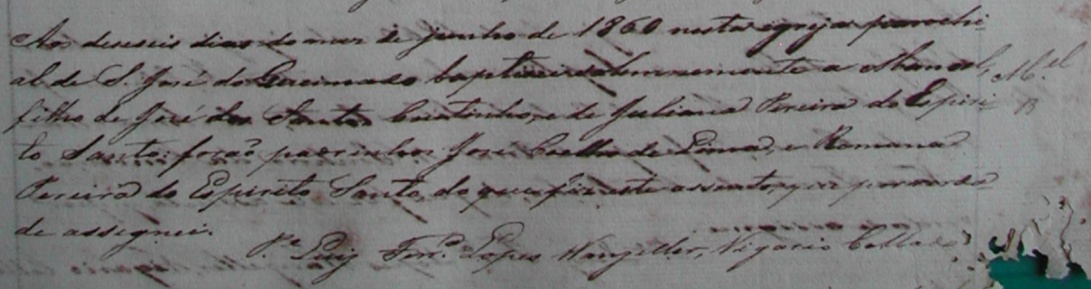 Aos deseseis dias do mez de junho de 1860 nesta igreja parochi-
al de S. José do Queimado baptisei solemnemente a Manoel, M.el
filho de José dos Santos Coutinho, e de Juliana Pereira do Espiri-
to Santo: forão padrinhos José Coelho de Lima, e Romana
Pereira do Espirito Santo, do que fiz este assento, que por verdade
de assignei.
P.e Luiz Lopes Wanzeller, Vigario Collado